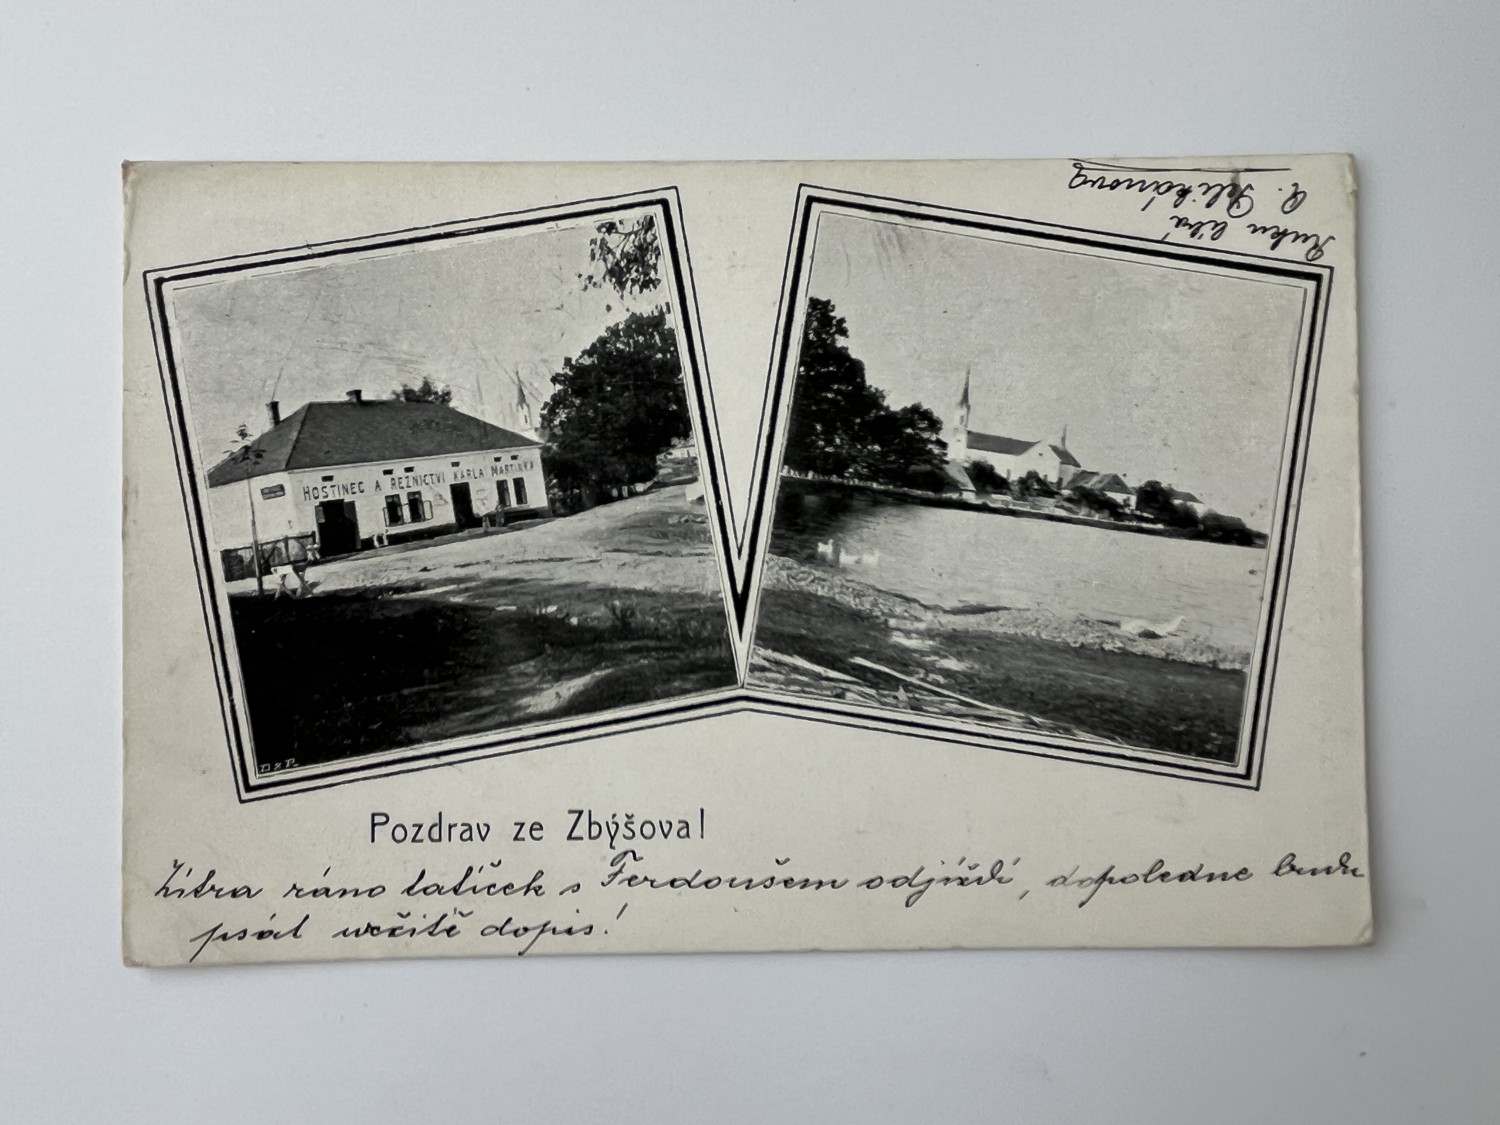 Ruku líbá
R. Pelikánová
HOSTINEC A ŘEZNICTVÍ KARLA MARTINKA
D & P.
Pozdrav ze Zbýšova!
Zítra ráno tatíček s Ferdoušem odjíždí, dopoledne budu
psát určitě dopis!